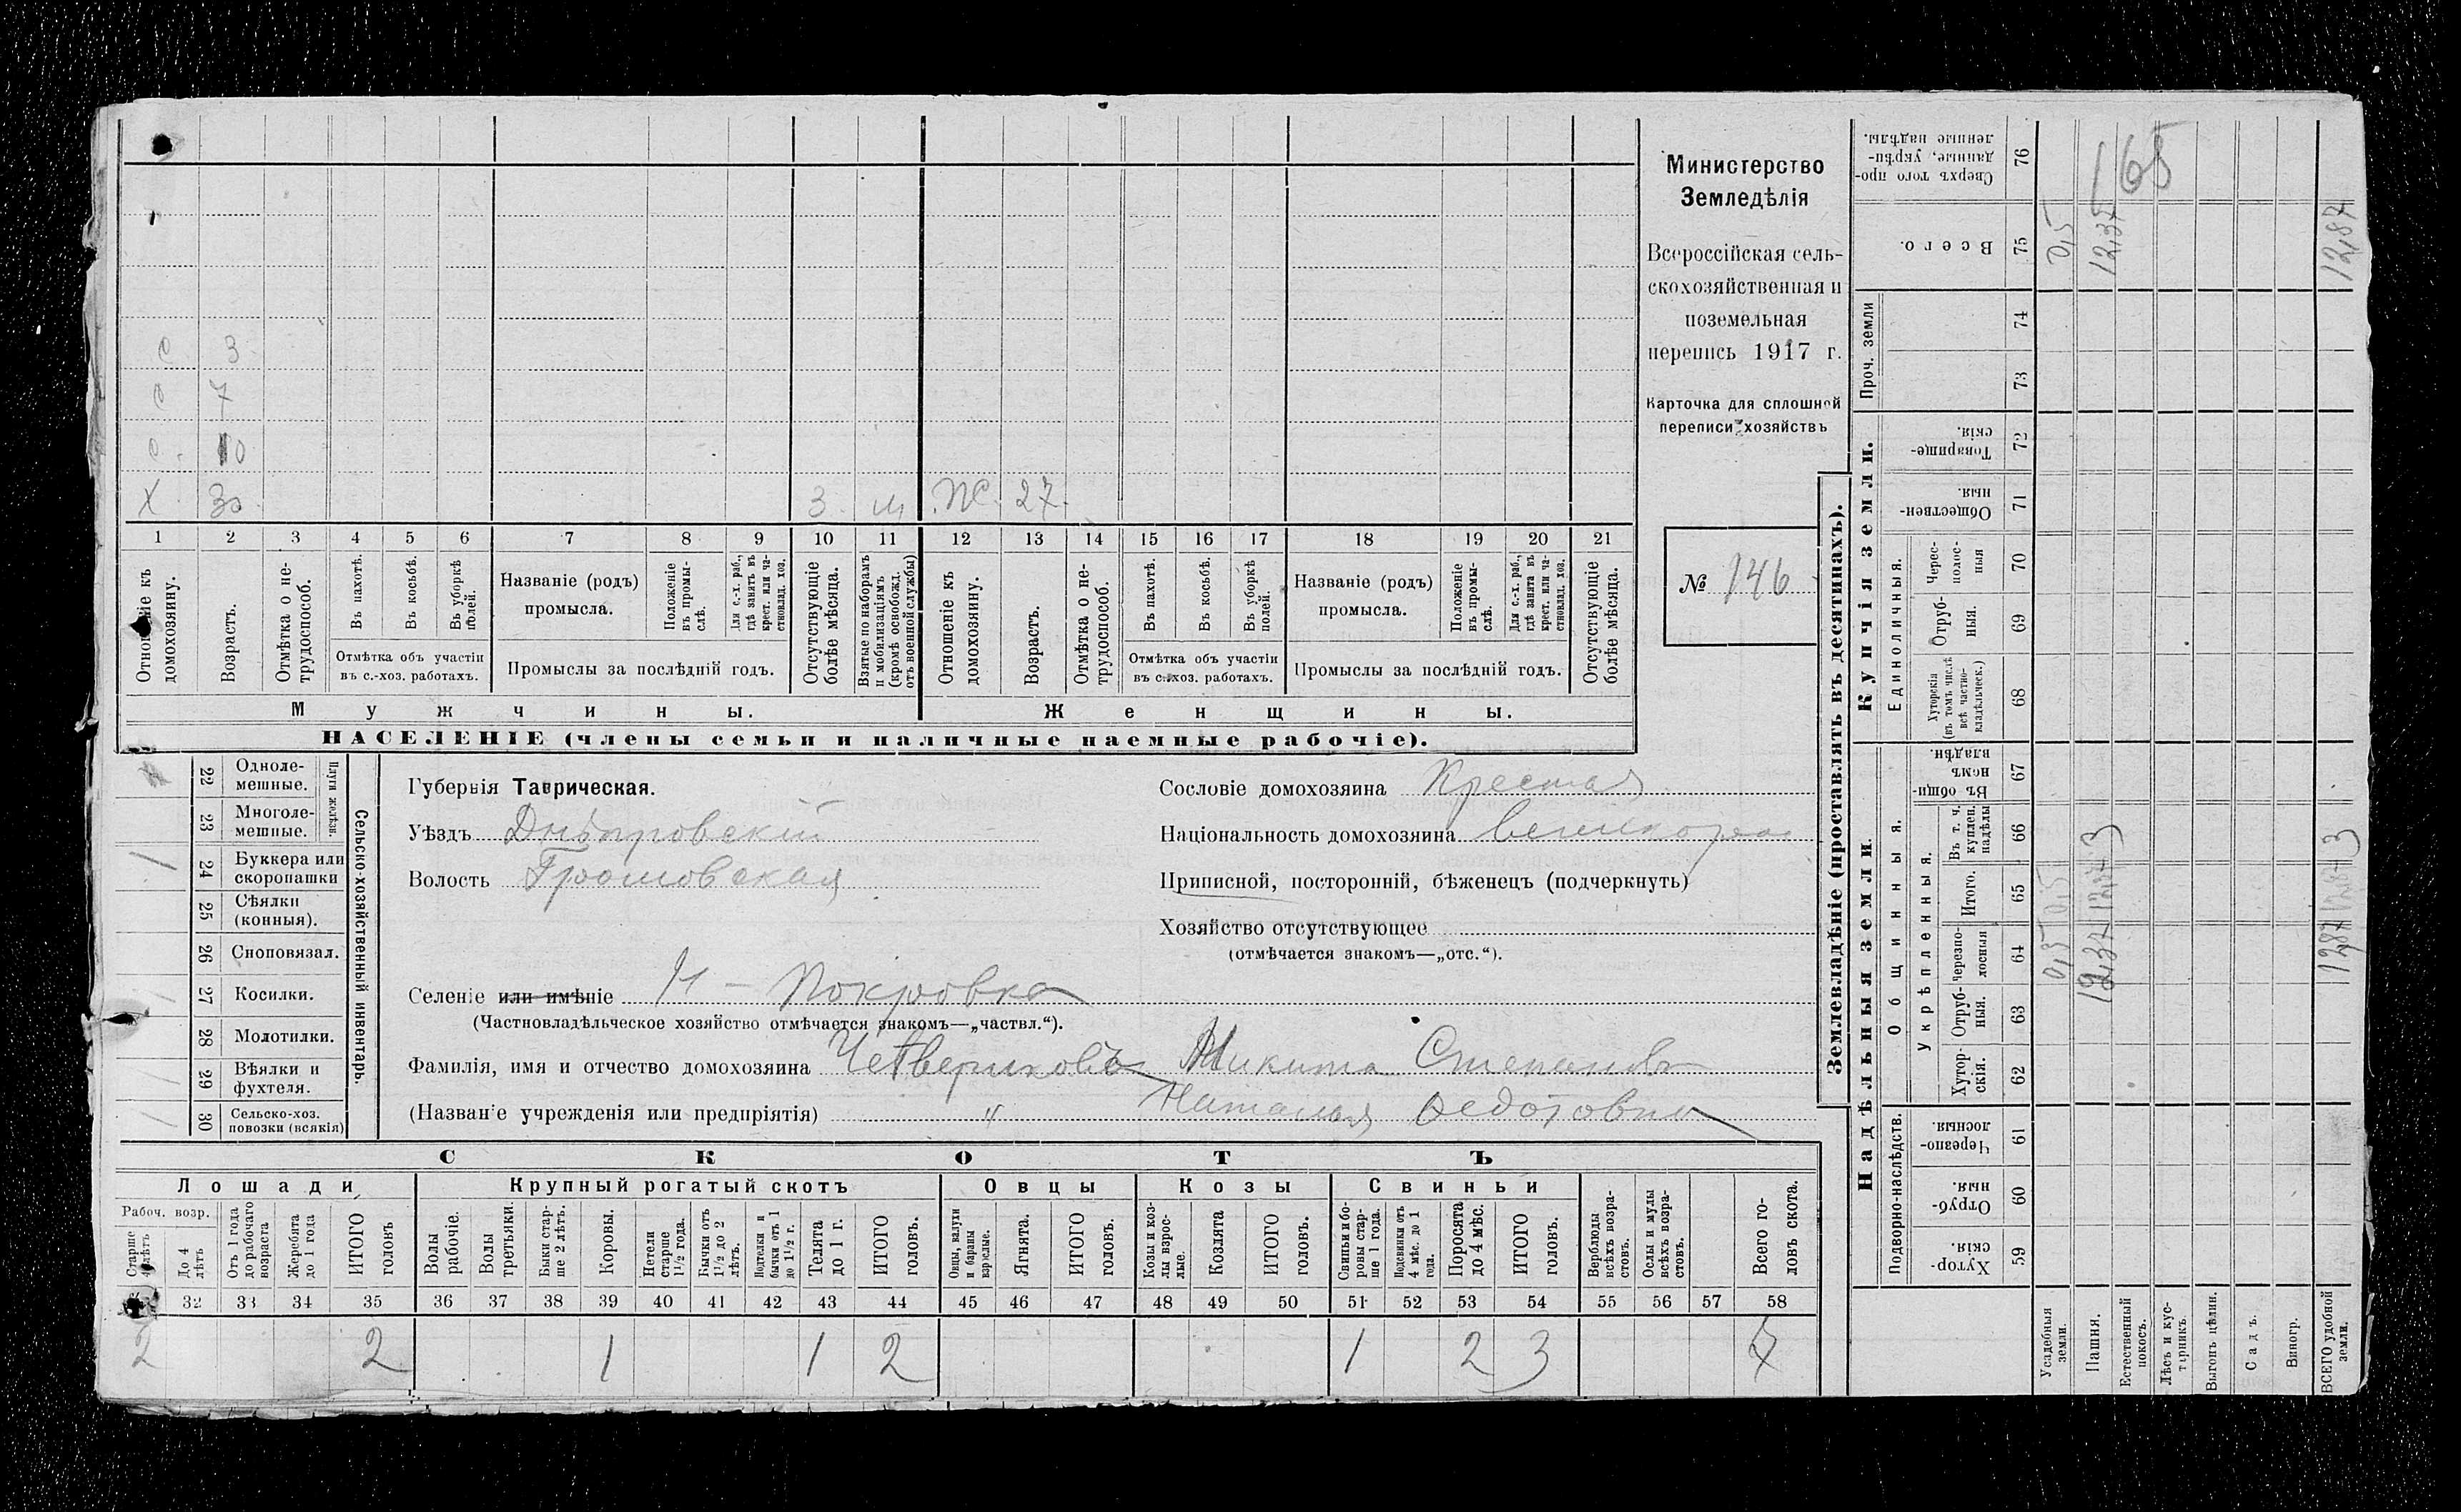 С 3
С 7
С. 10
Х. 30. 3. м Ж. 27.
1 2 3 4 5 6 7 8 9 10 11 12 13 14 15 16 17 18 19 20 21
Отношеніе къ домохозяину.
Возрастъ.
Отмѣтка о не-трудоспособ.
Въ пахотѣ.
Въ косьбѣ.
Въ уборкѣ полей.
Отмѣтка объ участіи
въ с.-хоз. работахъ.
Названіе (родъ)
промысла.
Положеніе въ промы-слѣ.
Для с.-х. раб., гдѣ занятъ въ крест. или ча-стновлад. хоз.
Промыслы за послѣдній годъ.
Отсутствующіе болѣе мѣсяца.
Взятые по наборамъ и мобилизаціямъ (кромѣ освобожд. отъ военной службы)
Отношеніе къ домохозяину.
Возрастъ.
Отмѣтка о не-трудоспособ.
Въ пахотѣ.
Въ косьбѣ.
Въ уборкѣ полей.
Отмѣтка объ участіи
въ с.-хоз. работахъ.
Названіе (родъ)
промысла.
Положеніе въ промы-слѣ.
Для с.-х. раб., гдѣ занята въ крест. или ча-стновлад. хоз.
Промыслы за послѣдній годъ.
Отсутствующіе болѣе мѣсяца.
Мужчины. Женщины.
НАСЕЛЕНІЕ (члены семьи и наличные наемные рабочіе).
Министерство
Земледѣлія
Всероссійская сель-
скохозяйственная и
поземельная
перепись 1917 г.
Карточка для сплошной
переписи хозяйствъ
№ 146
Сельско-хозяйственный инвентарь.
Плуги желѣзн.
22 Одноле-мешные.
23 Многоле-мешные.
1 24 Буккера или скоропашки
25 Сѣялки (конныя).
26 Сноповязал.
27 Косилки.
28 Молотилки.
29 Вѣялки и фухтеля.
1 30 Сельско-хоз. повозки (всякія)
Губернія Таврическая.
Уѣздъ Днѣпровскій
Волость
Селеніе или имѣніе Н - Покровка
(Частновладѣльческое хозяйство отмѣчается знакомъ—„частвл.“).
Фамилія, имя и отчество домохозяина Четвериковъ Никита Степановъ
(Названіе учрежденія или предпріятія) " Наталья Федотовна
Сословіе домохозяина
Національность домохозяина
Приписной, посторонній, бѣженецъ (подчеркнуть)
Хозяйство отсутствующее
(отмѣчается знакомъ—„отс.“).
СКОТЪ
Лошади Крупный рогатый скотъ Овцы Козы Свиньи
Рабоч. возр.
Старше 4 лѣтъ
До 4 лѣтъ
Отъ 1 года до рабочаго возраста
Жеребята до 1 года
ИТОГО головъ
Волы рабочіе.
Волы третьяки.
Быки стар-ше 2 лѣтъ.
Коровы.
Нетели старше 1½ года.
Бычки отъ 1½ до 2 лѣтъ.
Подтелки и бычки отъ 1 до 1½ г.
Телята до 1 г.
ИТОГО головъ.
Овцы, валухи и бараны взрослые.
Ягнята.
ИТОГО головъ.
Козы и коз-лы взрос-лые.
Козлята
ИТОГО головъ.
Свиньи и бо-ровы стар-ше 1 года.
Подсвинки отъ 4 мѣс. до 1 года.
Поросята до 4 мѣс.
ИТОГО головъ.
Верблюды всѣхъ возра-стовъ.
Ослы и мулы всѣхъ возра-стовъ.
Всего го-ловъ скота.
32 33 34 35 36 37 38 39 40 41 42 43 44 45 46 47 48 49 50 51 52 53 54 55 56 57 58
2 2 1 1 2 1 2 3 7
Землевладѣніе (проставлять въ десятинахъ).
Надѣльныя земли. Купчія земли. Проч. земли
Подворно-наслѣдств. Общинныя. Единоличныя.
Укрѣпленныя.
Хутор-скія. 59
Отруб-ныя. 60
Черезпо-лосныя. 61
Хутор-скія. 62
Отруб-ныя. 63
Черезпо-лосныя 64
Итого. 65
Въ т. ч. куплен. надѣлы 66
Въ общи-номъ владѣн. 67
Хуторскія (въ томъ числѣ всѣ частно-владѣльческ.) 68
Отруб-ныя. 69
Черес-полос-ныя 70
Обществен-ныя. 71
Товарище-скія. 72
73
74
Всего. 75
Сверхъ того про-данные, укрѣп-ленные надѣлы. 76
Усадебныя земли. 0,5 0,5 0,5
Пашня. 12,37 12,37 3 12,37 165
Естественный покосъ.
Лѣсъ и кус-тарникъ.
Выгонъ цѣлин.
Садъ.
Виногр.
ВСЕГО удобной земли. 12,87 12,87 3 12,87